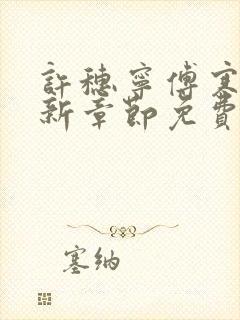 許穗寧傅寒
新章節免費
塞納